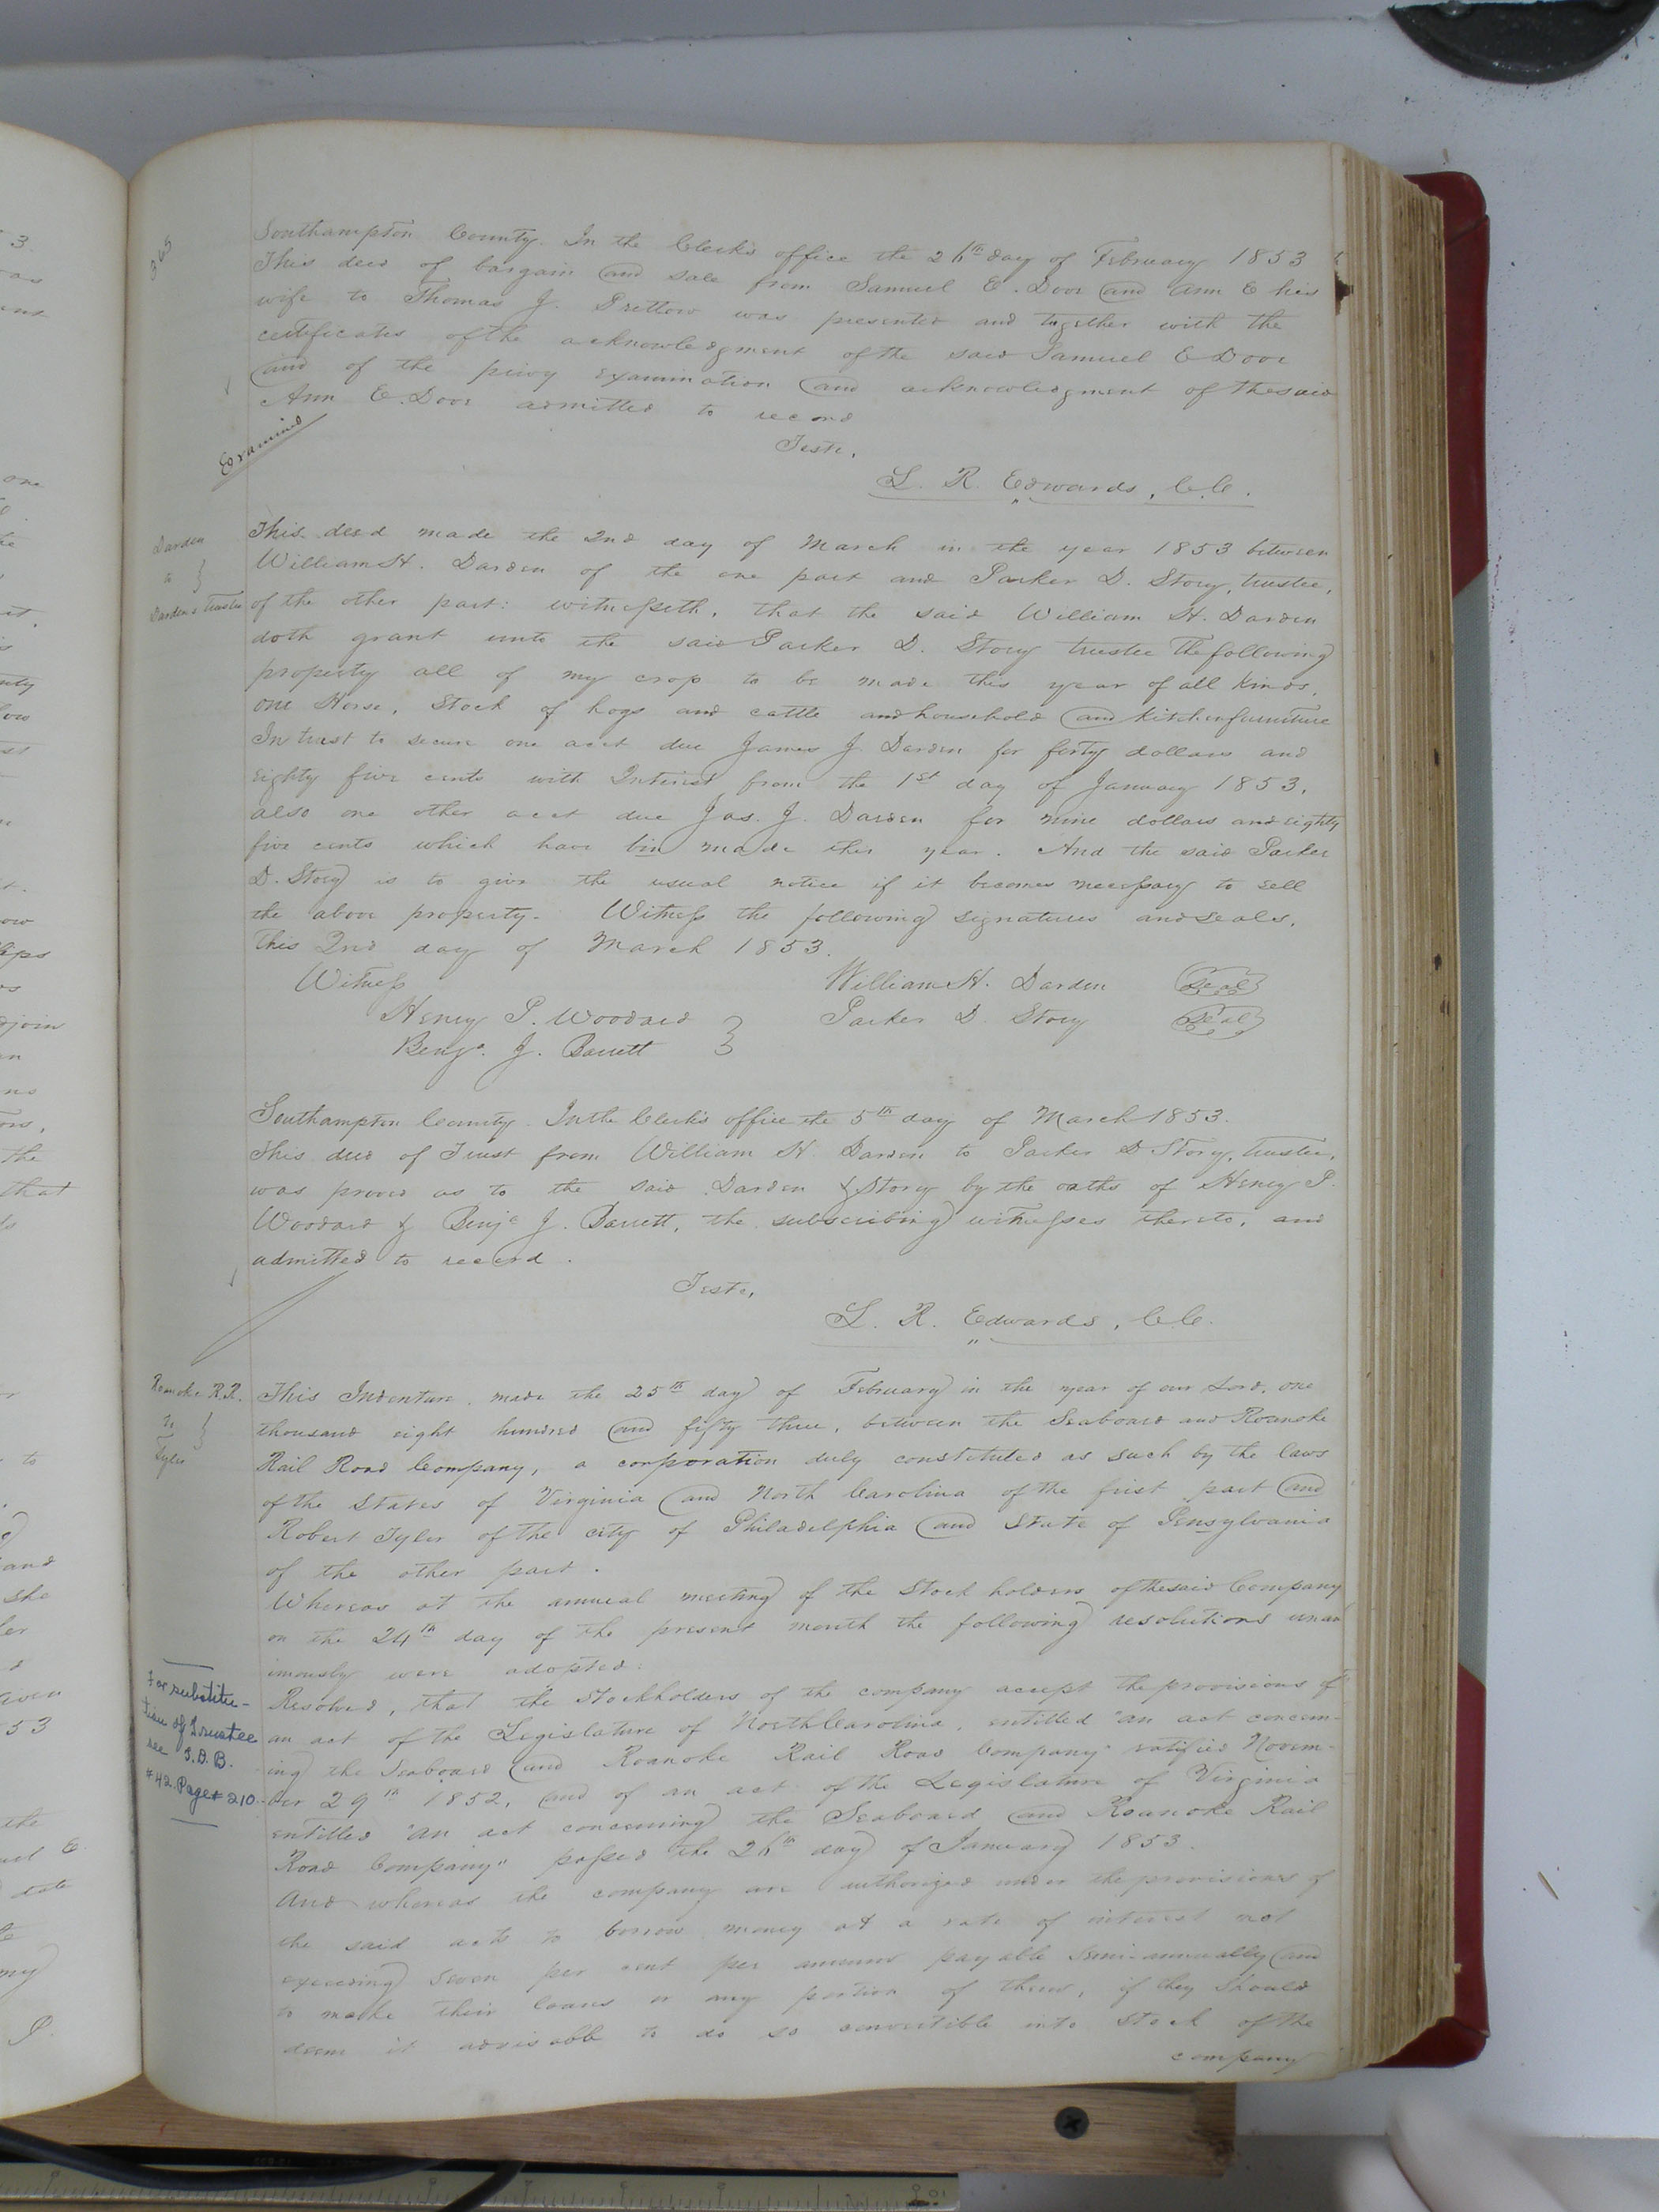 365
Southampton County. In the Clerk's office the 26th day of February 1853
This deed of bargain and sale from Samuel E. Door and Ann E his
wife to Thomas J. Pretlow was presented and together with the
certificates of the acknowledgment of the said Samuel E Door
and of the privy examination and acknowledgment of the said
Ann E. Door admitted to record
Teste,
L. R. Edwards, C.C.
Examined
Darden
to
Darden's Trustee
This deed made the 2nd day of March in the year 1853 between
William H. Darden of the one part and Parker D. Story, trustee,
of the other part: witnesseth, that the said William H. Darden
doth grant unto the said Parker D. Story trustee the following
property all of my crop to be made this year of all kinds,
one Horse, Stock of hogs and cattle and household and kitchen furniture
In trust to secure one acct due James J. Darden for forty dollars and
eighty five cents with Interest from the 1st day of January 1853,
also one other acct due Jas. J. Darden for nine dollars and eighty
five cents which have bin made this year. And the said Parker
D. Story is to give the usual notice if it becomes necessary to sell
the above property. Witness the following signatures and seals,
this 2nd day of March 1853.
Witness
William H. Darden Seal
Henry P. Woodard
Parker D. Story Seal
Benja. J. Barrett
Southampton County. In the Clerk's office the 5th day of March 1853.
This deed of Trust from William H. Darden to Parker D Story, trustee,
was proved as to the said Darden & Story by the oaths of Henry P.
Woodard & Benja J. Barrett, the subscribing witnesses thereto, and
admitted to record.
Teste,
L. R. Edwards, C.C.
Roanoke R.R.
to
Tyler
This Indenture, made the 25th day of February in the year of our Lord, one
thousand eight hundred and fifty three, between the Seaboard and Roanoke
Rail Road Company, a corporation duly constituted as such by the laws
of the States of Virginia and North Carolina of the first part and
Robert Tyler of the city of Philadelphia and State of Pensylvania
of the other part.
Whereas at the annual meeting of the Stock holders of the said Company
on the 24th day of the present month the following resolutions unan
imously were adopted:
Resolved, that the Stockholders of the company accept the provisions of
an act of the Legislature of North Carolina, entitled "an act concern-
ing the Seaboard and Roanoke Rail Road Company" ratified Novem-
ber 29th 1852, and of an act of the Legislature of Virginia
entitled "an act concerning the Seaboard and Roanoke Rail
Road Company" passed the 26th day of January 1853.
And whereas the company are authorized under the provisions of
the said acts to borrow money at a rate of interest not
exceeding seven per cent per annum payable semi-annually and
to make their loans or any portion of them, if they should
deem it advisable to do so convertible into Stock of the
company
For substitu-
tion of Trustee
see T.D.B.
#42. Page# 210.